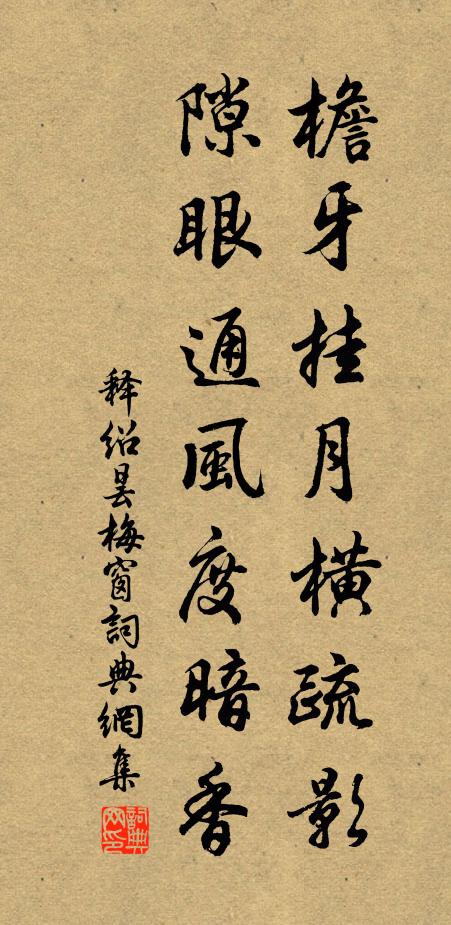 檐牙挂月橫疏影
隙眼通風度暗香
释绍昙梅窗詞典網集
詞典网印